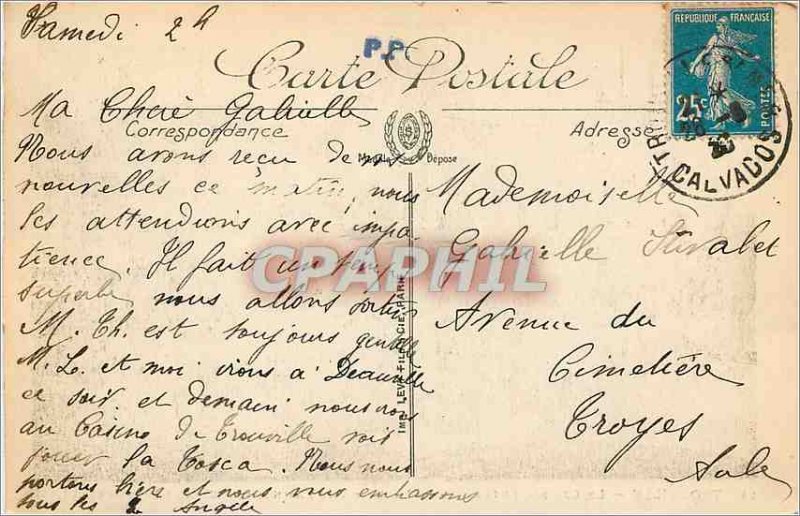 Samedi 2h
PP
Carte Postale
REPUBLIQUE FRANÇAISE
25c
POSTES
CALVADOS
Correspondance
Adresse
Ma Chère Gabrielle
Modèle Déposé
Nous avons reçu de
nouvelles ce matin, nous
les attendions avec impa
tience. Il fait un temps
superbe nous allons sortir
M. Th. est toujours gentille
M. L. et moi irons à Deauville
ce soir et demain nous irons
au Casino de Trouville voir
jouer la Tosca. Nous nous
portons bien et nous vous embrassons
tous les 2 Angèle
IMP. LEVY FILS & CIE, PARIS
CPAPHIL
Mademoiselle
Gabrielle
Avenue du
Cimetière
Troyes
Aube